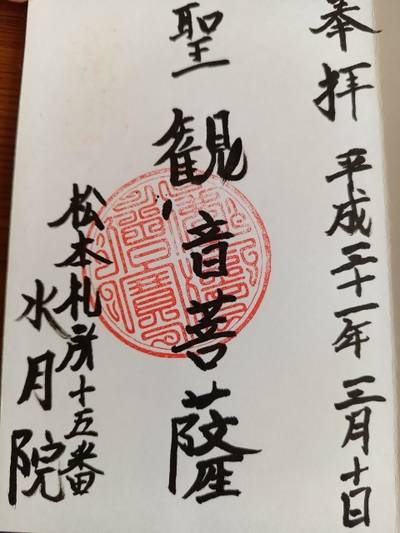 奉拝 平成三十一年 三月十日
聖観音菩薩
松本札所十五番
水月院